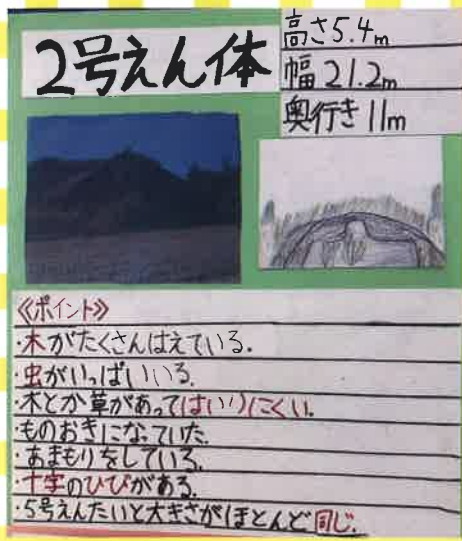 2号えん体
高さ5.4m
幅21.2m
奥行き11m
《ポイント》
・木がたくさんはえている.
・虫がいっぱいいる.
・木とか草があってはいりにくい.
・ものおきになっていた.
・あまもりをしている.
・十字のひびがある.
・5号えんたいと大きさがほとんど同じ.